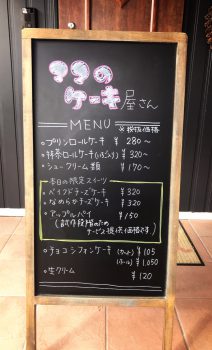 ママの
ケーキ屋さん
MENU
※税抜価格
・プリンロールケーキ ¥280〜
・抹茶ロールケーキ ¥320〜
・シュークリーム類 ¥170〜
本日の限定スイーツ
・ベイクドチーズケーキ ¥320
・なめらかチーズケーキ ¥320
・アップルパイ ¥150
(試作段階のため
サービス提供価格です)
・チョコシフォンケーキ (カット) ¥105
(ホール) ¥1,050
・生クリーム ¥120